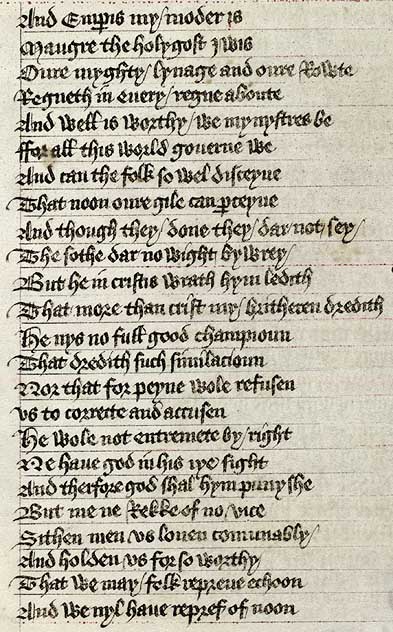 And Empis my / moder is
Maugre the holygost Iwis
Oure myghty / lynage and oure Rowte
Regneth in euery / regne aboute
And well is worthy / we mynystres be
ffor all this world gouerne we
And can the folk so wel disceyue
That noon oure gile can pceyue
And though they / done they / dar not sey /
The sothe dar no wight bywrey /
But he in cristis wrath hym ledith
That more than crist my / britheren dredith
He nys no full good champioun
That dredith such simlacioun
Nor that for peyne wole refusen
vs to correcte and accusen
He wole not entremete by / right
Ne haue god in his iye sight
And therfore god shal hym punyshe
But me ne Rekke of no vice
Sithen men vs louen comunably /
And holden vs for so worthy /
That we may / folk repreue echoon
And we nyl haue repref of noon